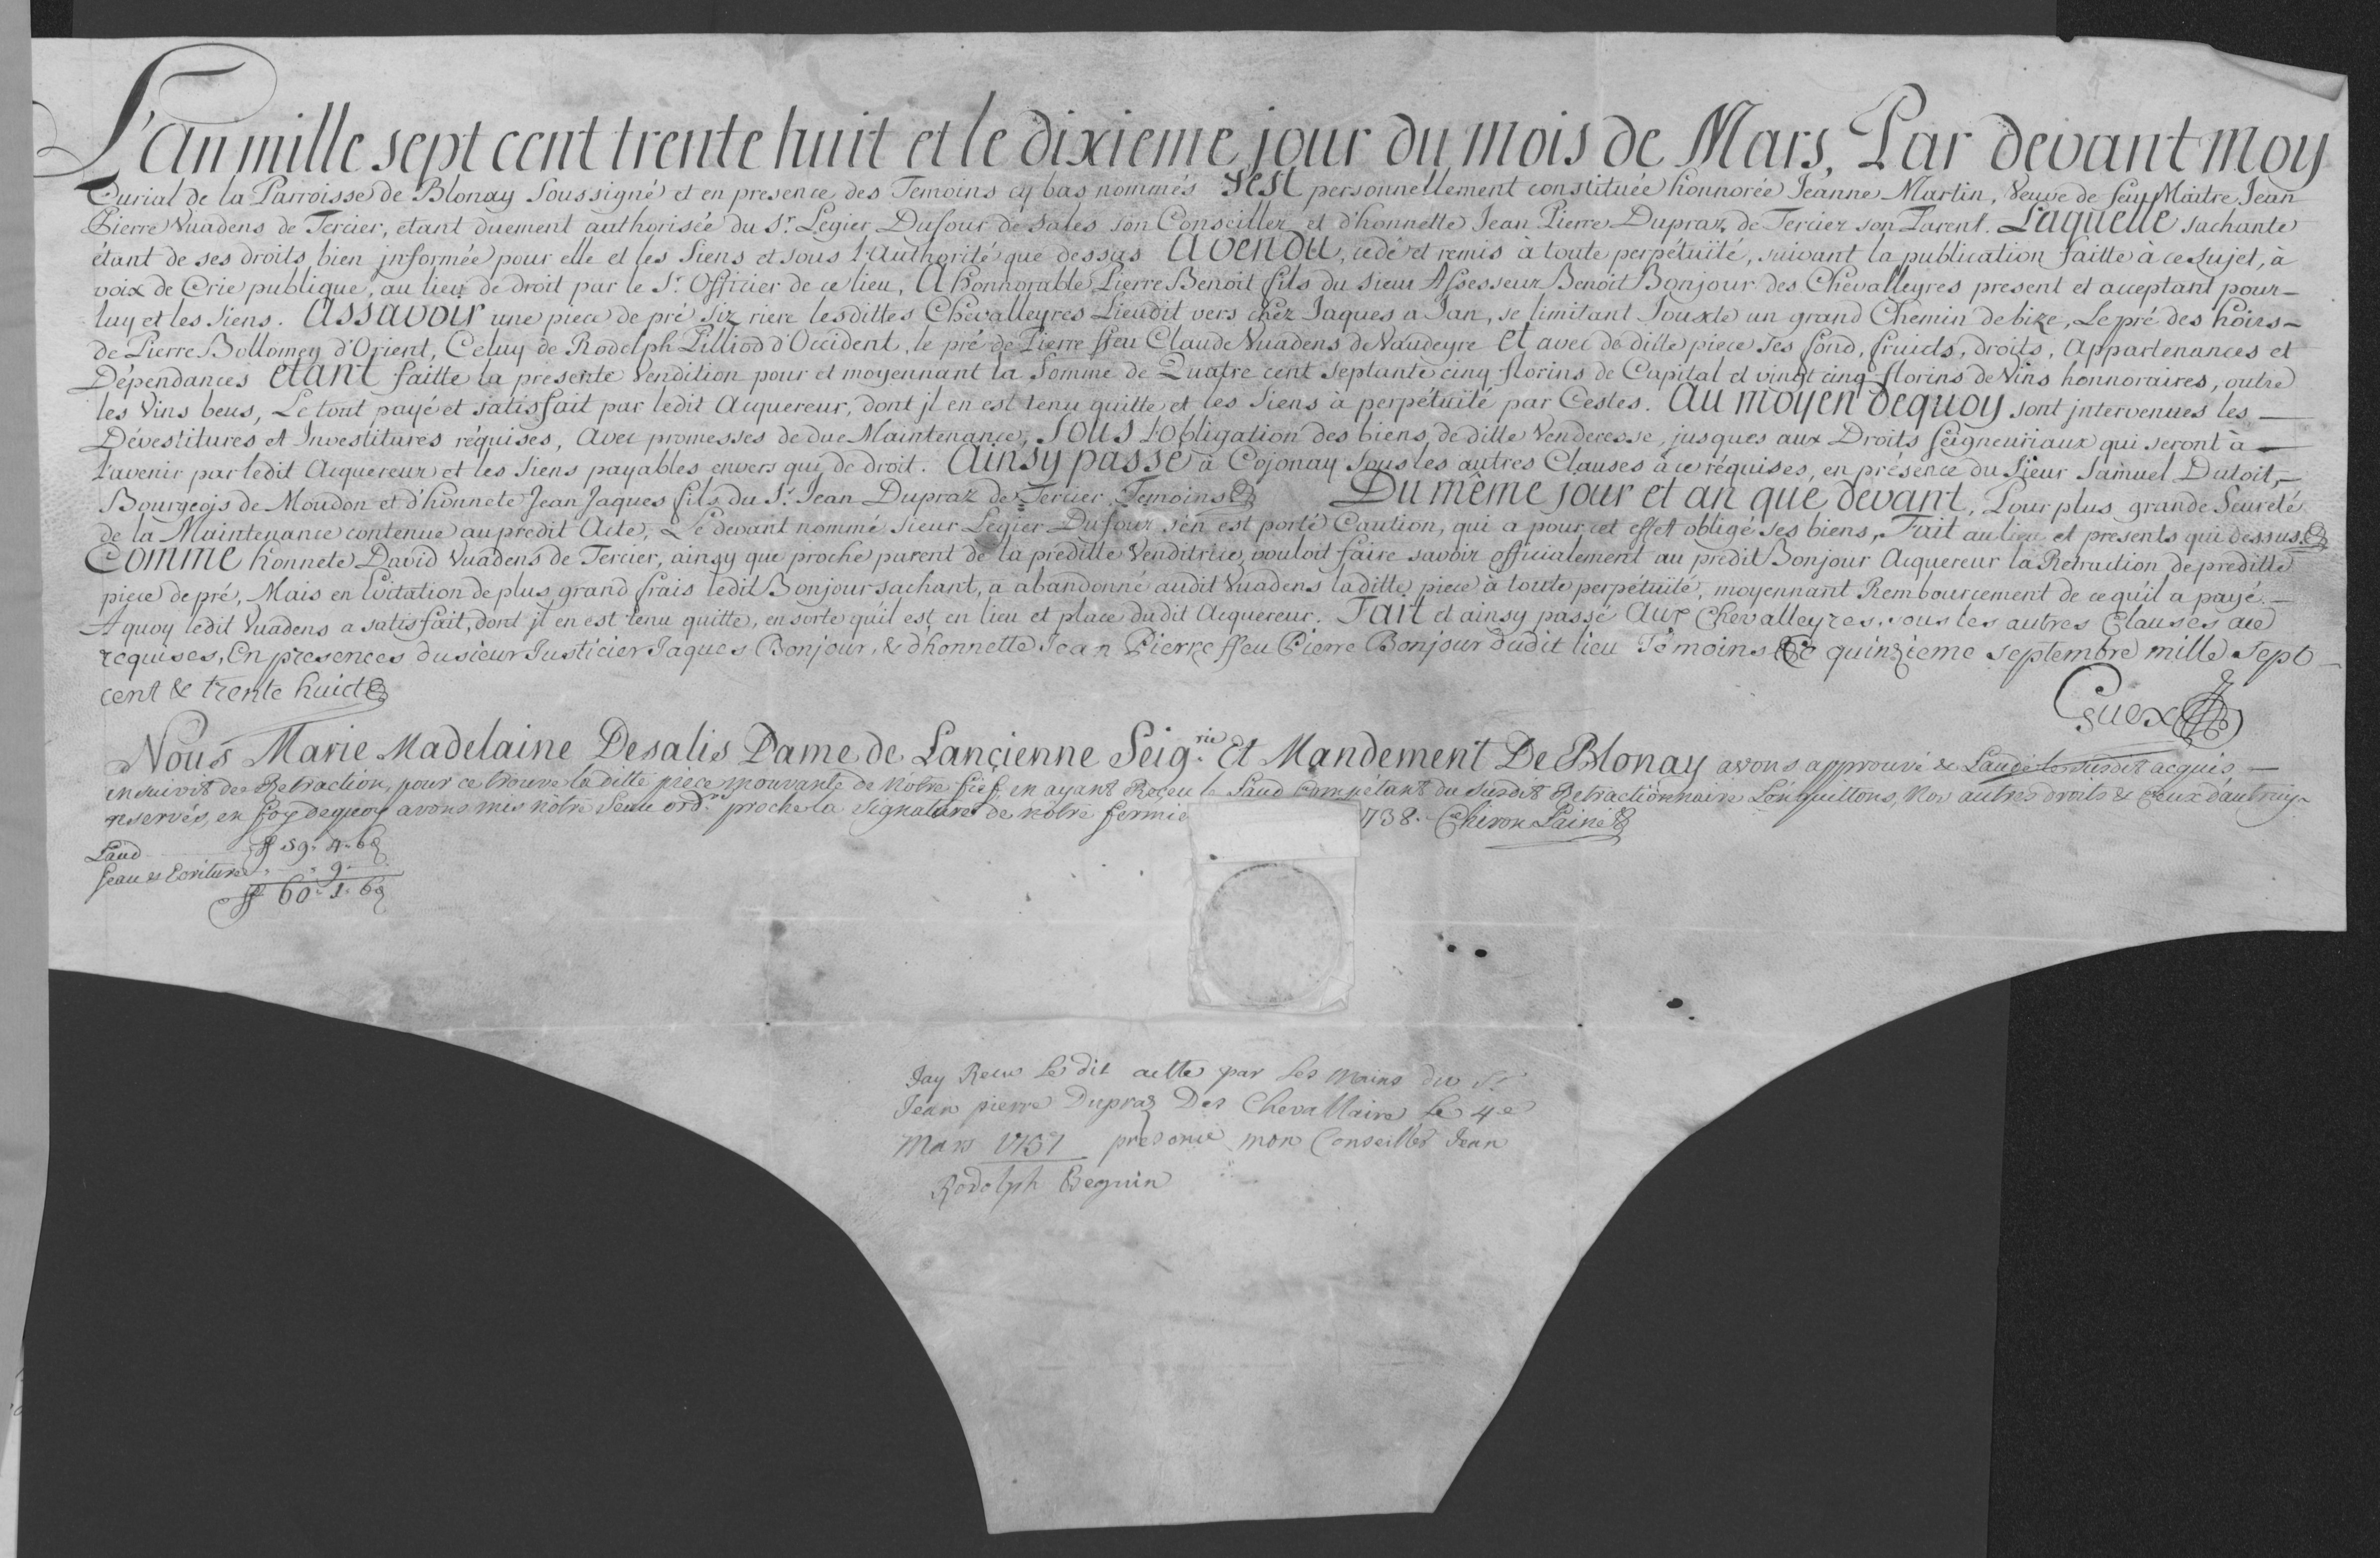 L'an mille sept cent trente huit et le dixieme jour du mois de Mars, Par devant moy
Curial de la Parroisse de Blonay soussigné et en presence des Temoins cy bas nommés s'est personnellement constituée honnorée Jeanne Martin, Veuve de feu Maitre Jean
Pierre Vuadens de Tercier, étant duement authorisée du Sr. Legier Dufour de Sales son Conseiller et d'honnette Jean Pierre Dupraz de Tercier son Parent. Laquelle sachante
étant de ses droits bien jnformée pour elle et les Siens et sous l'Authorité que dessus a vendu, cedé et remis à toute perpétuité, suivant la publication faitte à ce sujet, à
voix de Crie publique, au lieu de droit par le Sr. Officier de ce lieu, A honnorable Pierre Benoit fils du sieur Assesseur Benoit Bonjour des Chevalleyres present et acceptant pour-
luy et les Siens. Assavoir une piece de pré siz riere lesdittes Chevalleyres Lieudit vers chéz Jaques a Jan, se limitant Jouxte un grand Chemin de bize, Le pré des hoirs-
de Pierre Bollomey d'Orient, Celuy de Rodolph Pilliod d'Occident, le pré de Pierre ffeu Claude Vuadens de Vaudeyre Et avec de ditte piece ses fond, fruicts, droits, Appartenances et
Dépendances étant faitte la presente Vendition pour et moyennant la Somme de Quatre cent septante cinq florins de Capital et vingt cinq florins de Vins honnoraires, outre
les Vins beus, Le tout payé et satisfait par ledit Acquereur, dont jl en est tenu quitte et les Siens à perpétuité par Cestes. Au moyen dequoy sont jntervenues les —
Dévestitures et Jnvestitures réquises, Avec promesses de due Maintenance, sous l'Obligation des biens, de ditte Venderesse, jusques aux Droits seigneuriaux qui seront à —
l'avenir par ledit Acquereur et les Siens payables envers qui de droit. Ainsy passé à Cojonay sous les autres Clauses à ce réquises, en présence du Sieur Samuel Dutoit, —
Bourgeois de Moudon et d'honnete Jean Jaques fils du Sr. Jean Dupraz de Tercier Temoins Du même jour et an que devant, Pour plus grande Seureté
de la Maintenance contenue au prédit Acte, Le devant nommé Sieur Legier Dufour s'en est porté Caution, qui a pour cet effet obligé ses biens, Fait au lieu et presents qui dessus.
Comme honnete David Vuadens de Tercier, ainsy que proche parent de la préditte Venditrice, vouloit faire savoir officialement au prédit Bonjour Acquereur la Rétraction de preditte
piece de pré, Mais en Evitation de plus grand frais ledit Bonjour sachant, a abandonné audit Vuadens laditte piece à toute perpétuité, moyennant Rembourcement de ce qu'il a payé.—
A quoy ledit Vuadens a satisfait, dont jl en est tenu quitte, en sorte qu'il est en lieu et place du dit Acquereur. Fait et ainsy passé Aux Chevalleyres, sous les autres Clauses ace
requises, En presences du sieur Justicier Jaques Bonjour, & dhonnette Jean Pierre ffeu Pierre Bonjour dudit lieu Témoins Ce quinzieme septembre mille sept
cent & trente huict
Guex
Nous Marie Madelaine Desalis Dame de Lançienne Seig.rie Et Mandement De Blonay avons approuvé & Laudé le susdit acquis —
ensuivit de Retraction, pour ce trouve laditte piece mouvante de Nôtre fief, en ayant Reçeu le Laud Compétant du susdit Retractionnaire L'enquittons, Nos autres droits & Ceux dautruy
reservés, en foy dequoy avons mis nôtre Seau ord.re proche la Signature de nôtre fermie 738. Cheron Lainé
Laud ff 59. 4. 6
Seau & Ecriture 9.
ff 60. 1. 6
Jay Receu Le dit actte par les mains du Sr
Jean pierre Dupraz Des Chevallaire Le 4e
Mars presence mon Conseiller Jean
Rodolph Beguin